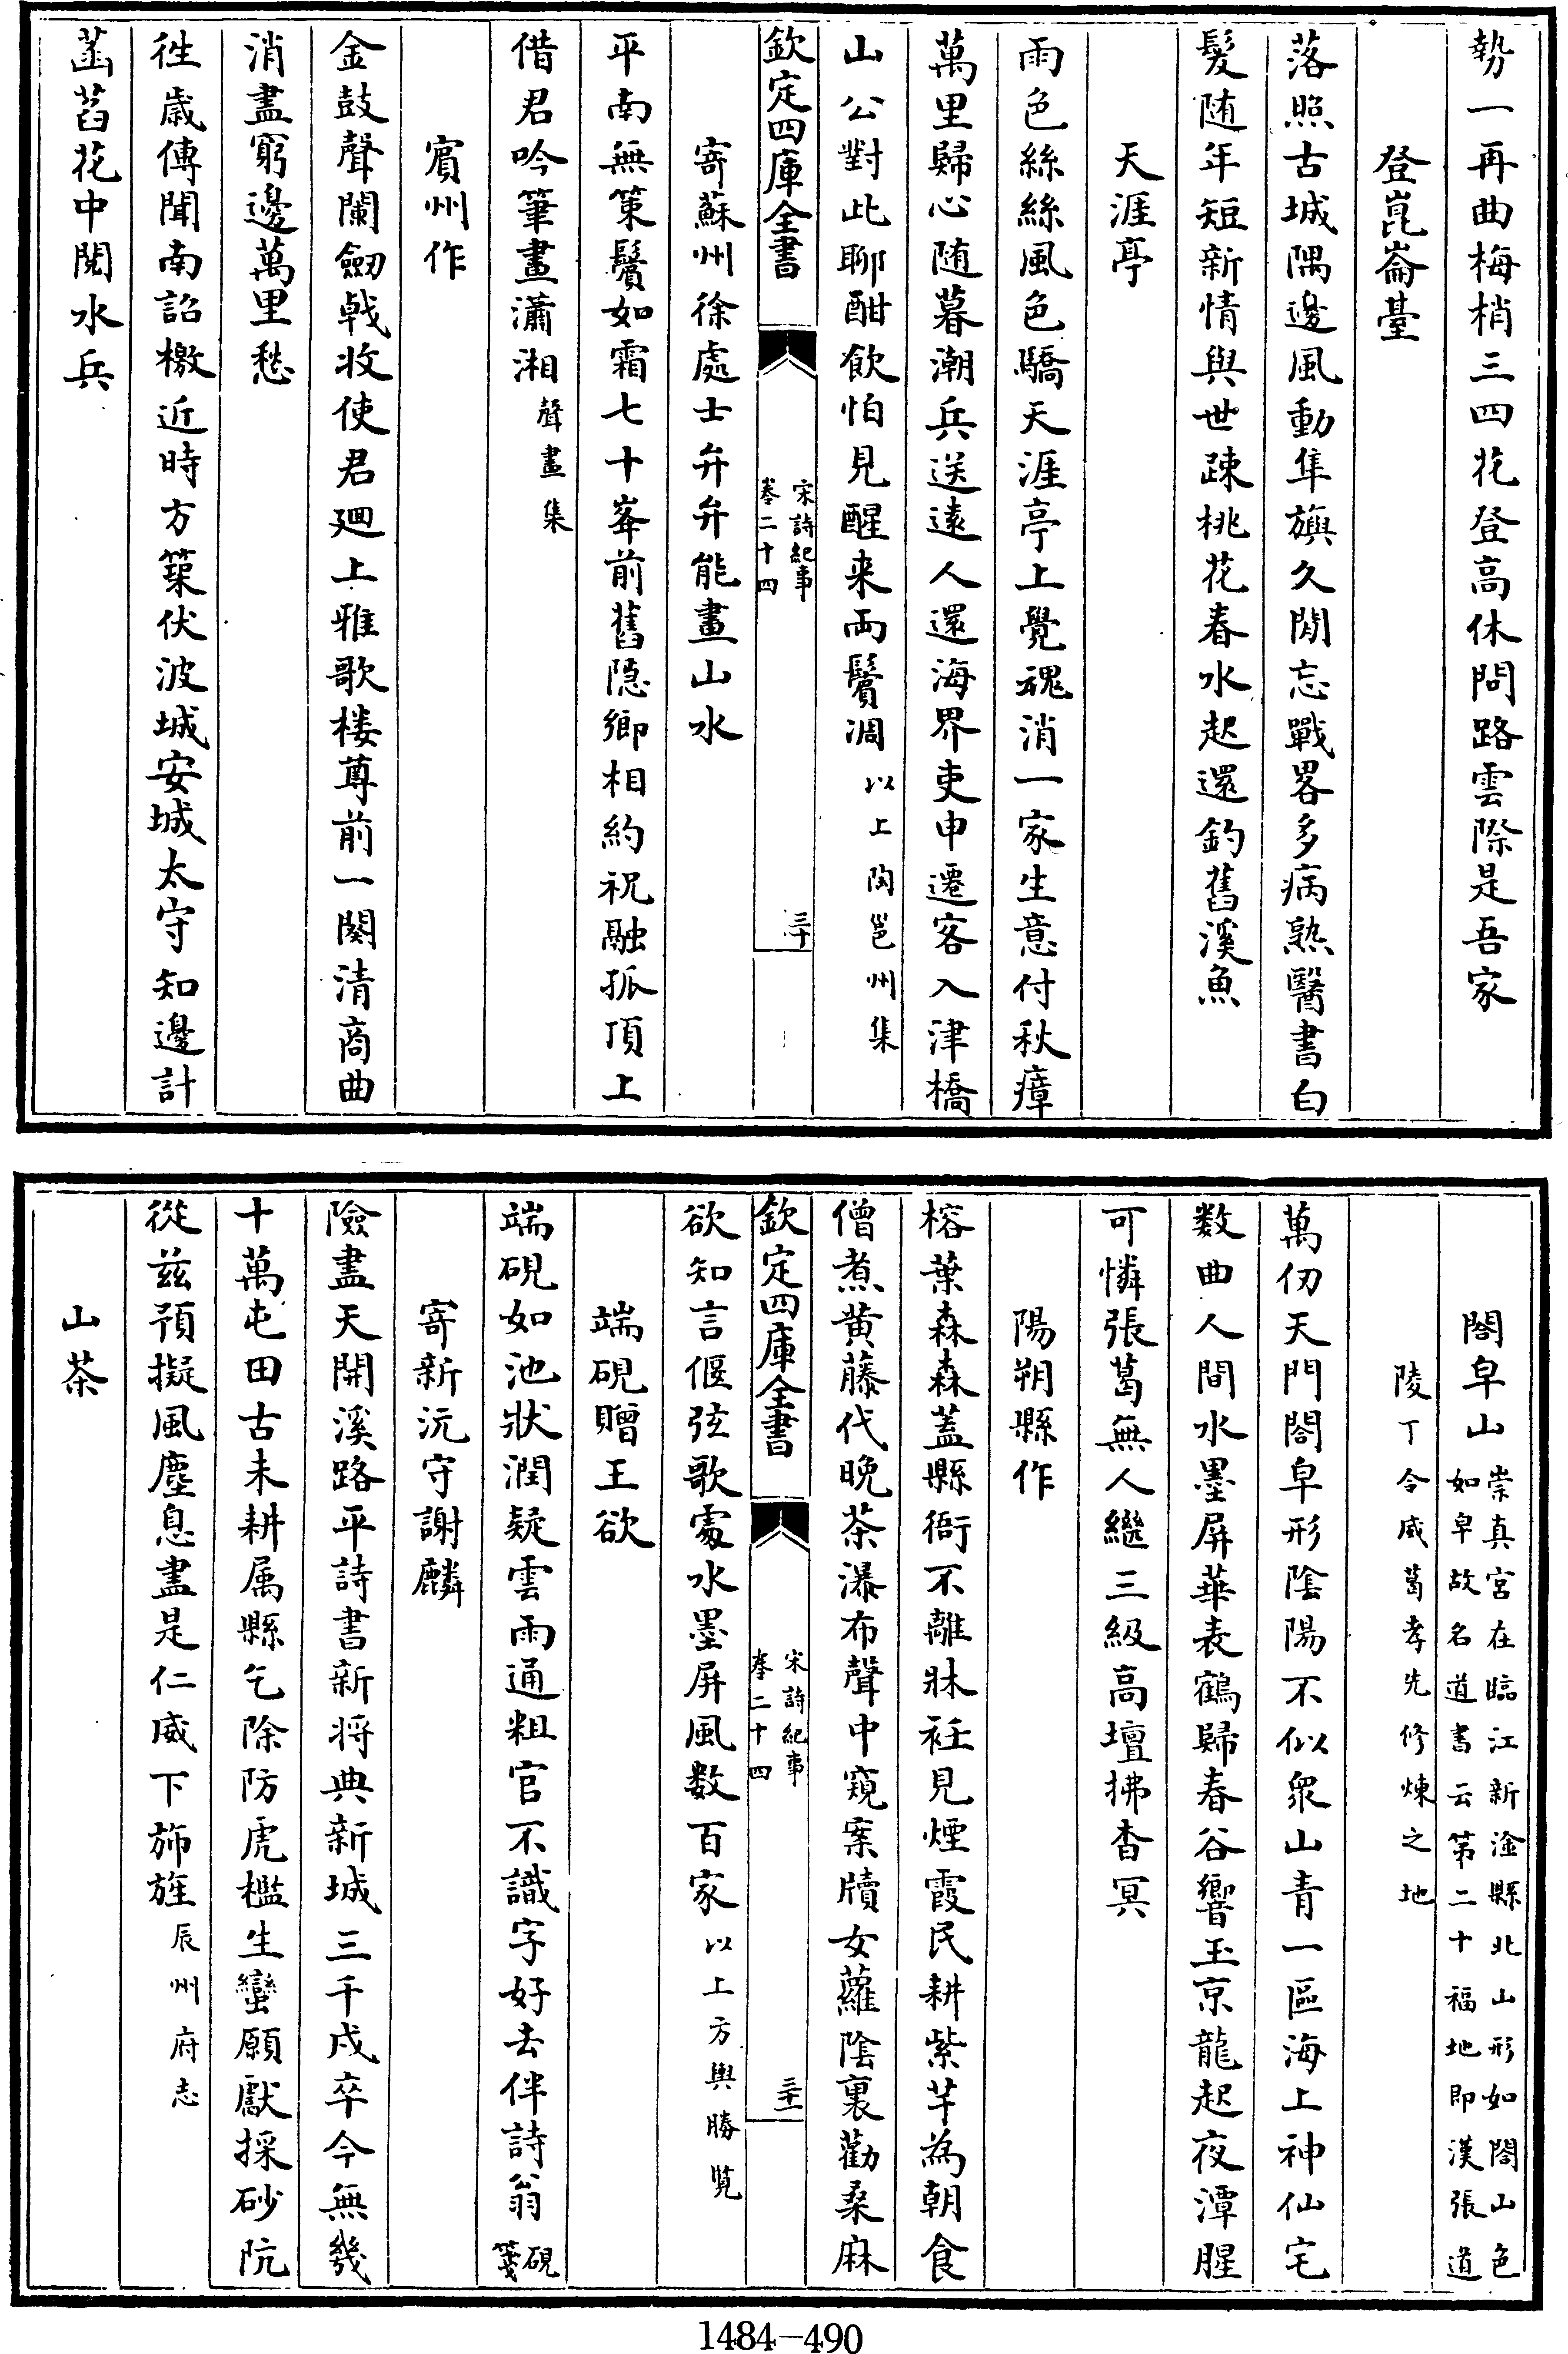 勢一再曲梅梢三四花登高休問路雲際是吾家
登崑崙臺
落照古城隅邊風動隼旟久閒忘戰畧多病熟醫書白
髮随年短新情與世疎桃花春水起還釣舊溪魚
天涯亭
雨色絲絲風色驕天涯亭上覺魂消一家生意付秋瘴
萬里歸心随暮潮兵送遠人還海界吏申遷客入津橋
山公對此聊酣飲怕見醒来兩鬢凋以上陶邕州集
欽定四庫全書
宋詩紀事
卷二十四
三十
寄蘇州徐處士弁弁能畫山水
平南無策鬢如霜七十峯前舊隐鄉相約祝融孤頂上
借君吟筆畫瀟湘聲畫集
賓州作
金鼓聲闌劒戟收使君廻上雅歌楼尊前一闋清商曲
消盡窮邊萬里愁
徃歳傳聞南詔檄近時方築伏波城安城太守知邊計
菡萏花中閲水兵
閤皁山
崇真宮在臨江新淦縣北山形如閤山色
如皁故名道書云第二十福地即漢張道
陵丁令威葛孝先修煉之地
萬仞天門閤皁形陰陽不似衆山青一區海上神仙宅
数曲人間水墨屏華表鶴歸春谷響玉京龍起夜潭腥
可憐張葛無人繼三級高壇拂杳冥
陽朔縣作
榕葉森森蓋縣衙不離牀衽見煙霞民耕紫芋為朝食
僧煮黄藤代晚茶瀑布聲中窺案牘女蘿陰裏勸桑麻
欽定四庫全書
宋詩紀事
卷二十四
三十一
欲知言偃弦歌處水墨屏風数百家以上方輿勝覧
端硯贈王欲
端硯如池狀潤疑雲雨通粗官不識字好去伴詩翁硯箋
寄新沅守謝麟
險盡天開溪路平詩書新将典新城三千戍卒今無幾
十萬屯田古未耕属縣乞除防虎檻生蠻願獻採砂阬
從兹預擬風塵息盡是仁威下斾旌辰州府志
山茶
1484-490